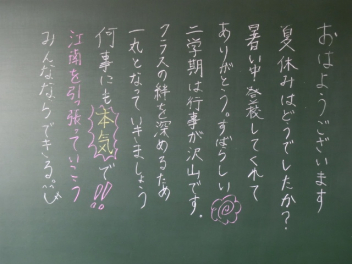 おはようございます
夏休みはどうでしたか?
暑い中 登校してくれて
ありがとう。すばらしい
二学期は行事が沢山です。
クラスの絆を深めるため
一丸となっていきましょう
何事にも本気で!!
江南を引っ張っていこう
みんなならできる。